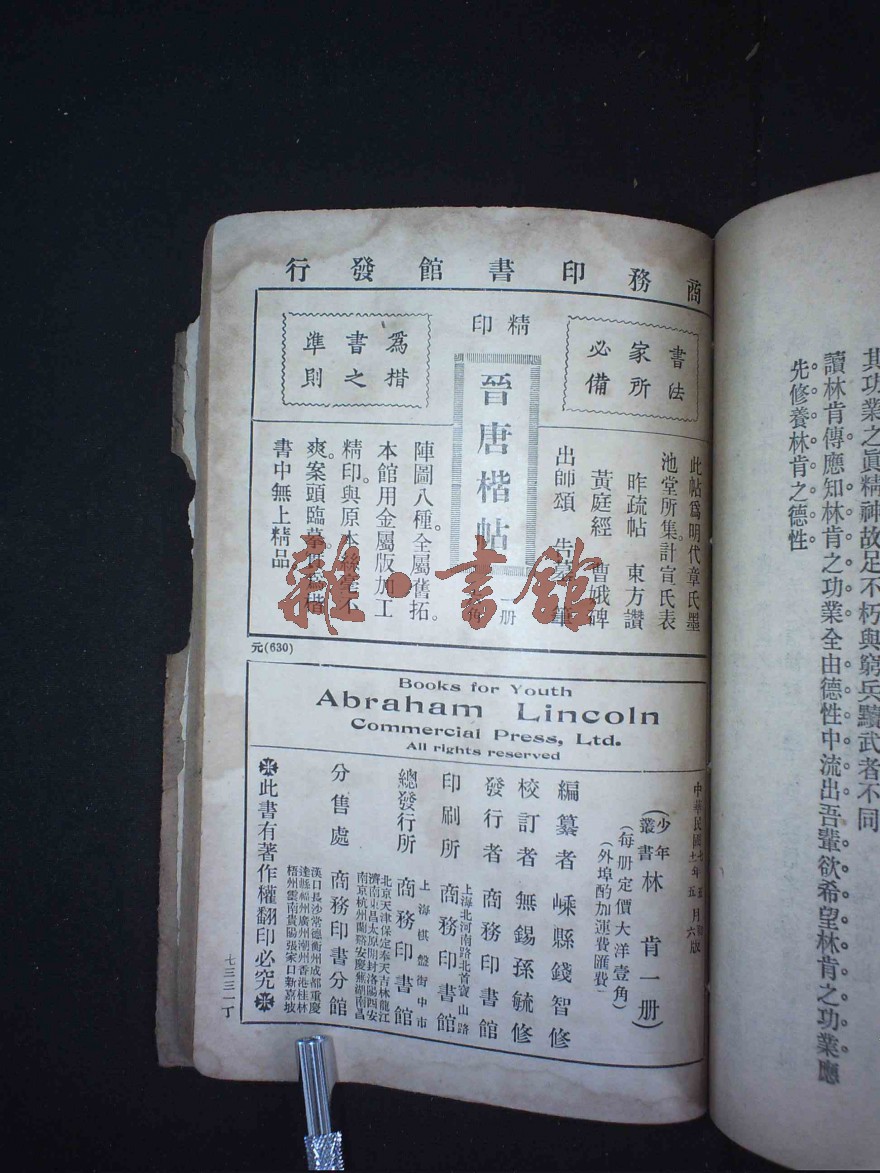 其功業之眞精神故足不朽與窮兵黷武者不同
讀林肯傳應知林肯之功業全由德性中流出吾輩欲希望林肯之功業應
先修養林肯之德性
商務印書館發行
書法
家所
必備
精印
晉唐楷帖
一册
爲楷
書之
準則
此帖爲明代章氏墨
池堂所集計宣氏表
昨疏帖 東方讚
黃庭經 曹娥碑
出師頌 告墓 筆
陣圖八種。全屬舊拓。
本館用金屬版加工
精印與原本絲毫不
爽。案頭臨摹。旣爲楷
書中無上精品
元(630)
雜·書館
Books for Youth
Abraham Lincoln
Commercial Press, Ltd.
All rights reserved
中華民國
年五月六版
(少年叢書林肯一册)
(每册定價大洋壹角)
(外埠酌加運費匯費)
編纂者 嵊縣錢智修
校訂者 無錫孫毓修
發行者 商務印書館
上海北河南路北首寶山路
印刷所 商務印書館
上海棋盤街中市
總發行所 商務印書館
北京天津保定奉天吉林龍江
濟南東昌太原開封洛陽西安
南京杭州蘭谿安慶蕪湖南昌
分售處 商務印書分館
漢口長沙常德衡州成都重慶
達縣福州廣州潮州香港桂林
梧州雲南貴陽張家口新嘉坡
此書有著作權翻印必究
七三三一丁